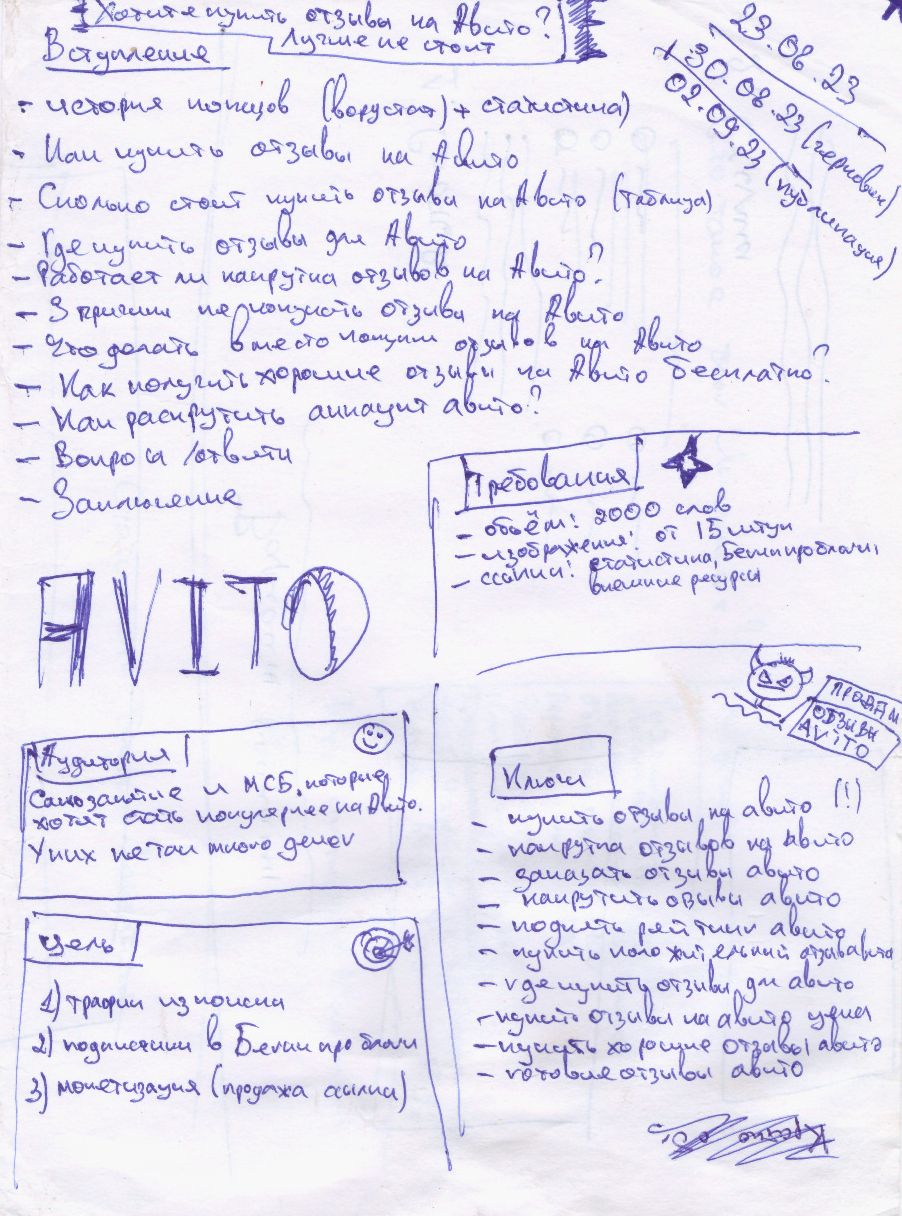 Хотите купить отзывы на Авито?
Лучше не стоит
23.08.23
30.08.23 (черновик)
02.09.23 (публикация)
Вступление
- история (ворустат) + статистика)
- Как купить отзывы на Авито
- Сколько стоит купить отзывы на Авито (таблица)
- Где купить отзывы для Авито
- Работает ли накрутка отзывов на Авито?
- 3 причины не покупать отзывы на Авито
- Что делать вместо покупки отзывов на Авито
- Как получить хорошие отзывы на Авито бесплатно?
- Как раскрутить аккаунт авито?
- Вопросы/ответы
- Заключение
Требования
- объём: 2000 слов
- изображения: от 15 штук
- ссылки: статистика, Бегин про блоги,
внешние ресурсы
AVITO
ПРОДАМ
ОТЗЫВЫ
AViTO
Аудитория
Самозанятые и МСБ, которые
хотят стать популярнее на Авито.
У них не так много денег
Ключи
- купить отзывы на авито (!)
- накрутка отзывов на авито
- заказать отзывы авито
- накрутить озывы авито
- поднять рейтинг авито
- купить положительный отзыв авито
- где купить отзывы для авито
- купить отзывы на авито цена
- купить хорошие отзывы авито
- готовые отзывы авито
Цель
1) трафик из поиска
2) подписчики в Бегин про блоги
3) монетизация (продажа ссылки)